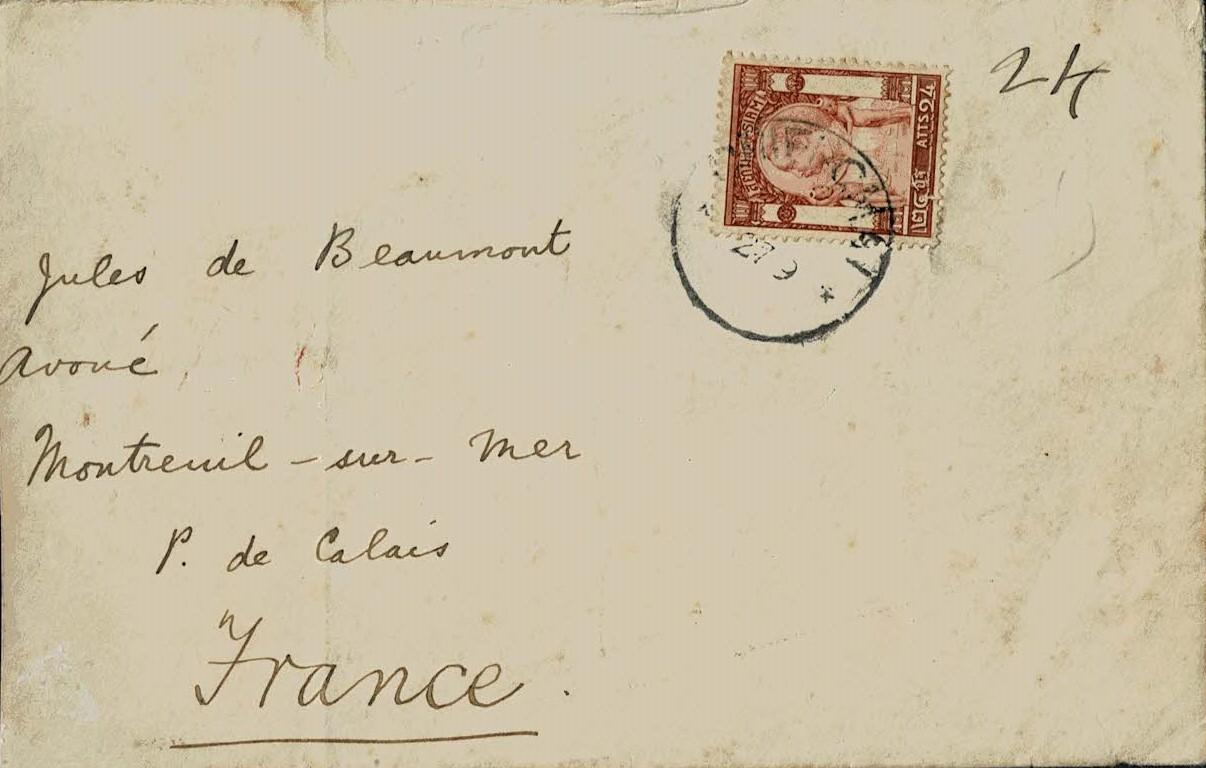 24
SIAM
ATTS 24
22 9
Jules de Beaumont
Avoué
Montreuil - sur - Mer
P. de Calais
France